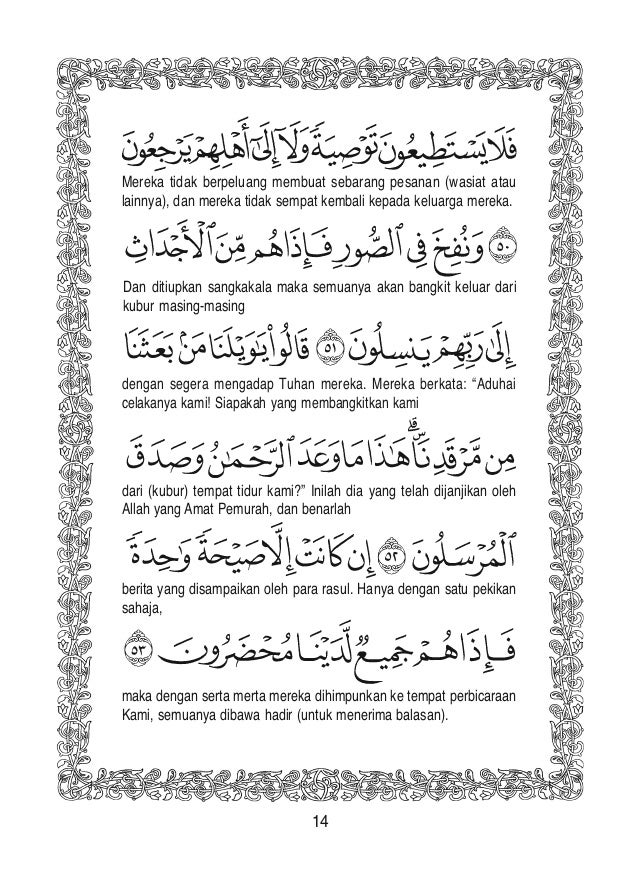 فَلَا يَسْتَطِيعُونَ تَوْصِيَةً وَلَآ إِلَىٰٓ أَهْلِهِمْ يَرْجِعُونَ
Mereka tidak berpeluang membuat sebarang pesanan (wasiat atau
lainnya), dan mereka tidak sempat kembali kepada keluarga mereka.
۝٥٠ وَنُفِخَ فِى ٱلصُّورِ فَإِذَا هُم مِّنَ ٱلْأَجْدَاثِ
Dan ditiupkan sangkakala maka semuanya akan bangkit keluar dari
kubur masing-masing
إِلَىٰ رَبِّهِمْ يَنسِلُونَ ۝٥١ قَالُوا۟ يَٰوَيْلَنَا مَنۢ بَعَثَنَا
dengan segera mengadap Tuhan mereka. Mereka berkata: “Aduhai
celakanya kami! Siapakah yang membangkitkan kami
مِن مَّرْقَدِنَا ۜ ۗ هَٰذَا مَا وَعَدَ ٱلرَّحْمَٰنُ وَصَدَقَ
dari (kubur) tempat tidur kami?” Inilah dia yang telah dijanjikan oleh
Allah yang Amat Pemurah, dan benarlah
ٱلْمُرْسَلُونَ ۝٥٢ إِن كَانَتْ إِلَّا صَيْحَةً وَٰحِدَةً
berita yang disampaikan oleh para rasul. Hanya dengan satu pekikan
sahaja,
فَإِذَا هُمْ جَمِيعٌ لَّدَيْنَا مُحْضَرُونَ ۝٥٣
maka dengan serta merta mereka dihimpunkan ke tempat perbicaraan
Kami, semuanya dibawa hadir (untuk menerima balasan).
14